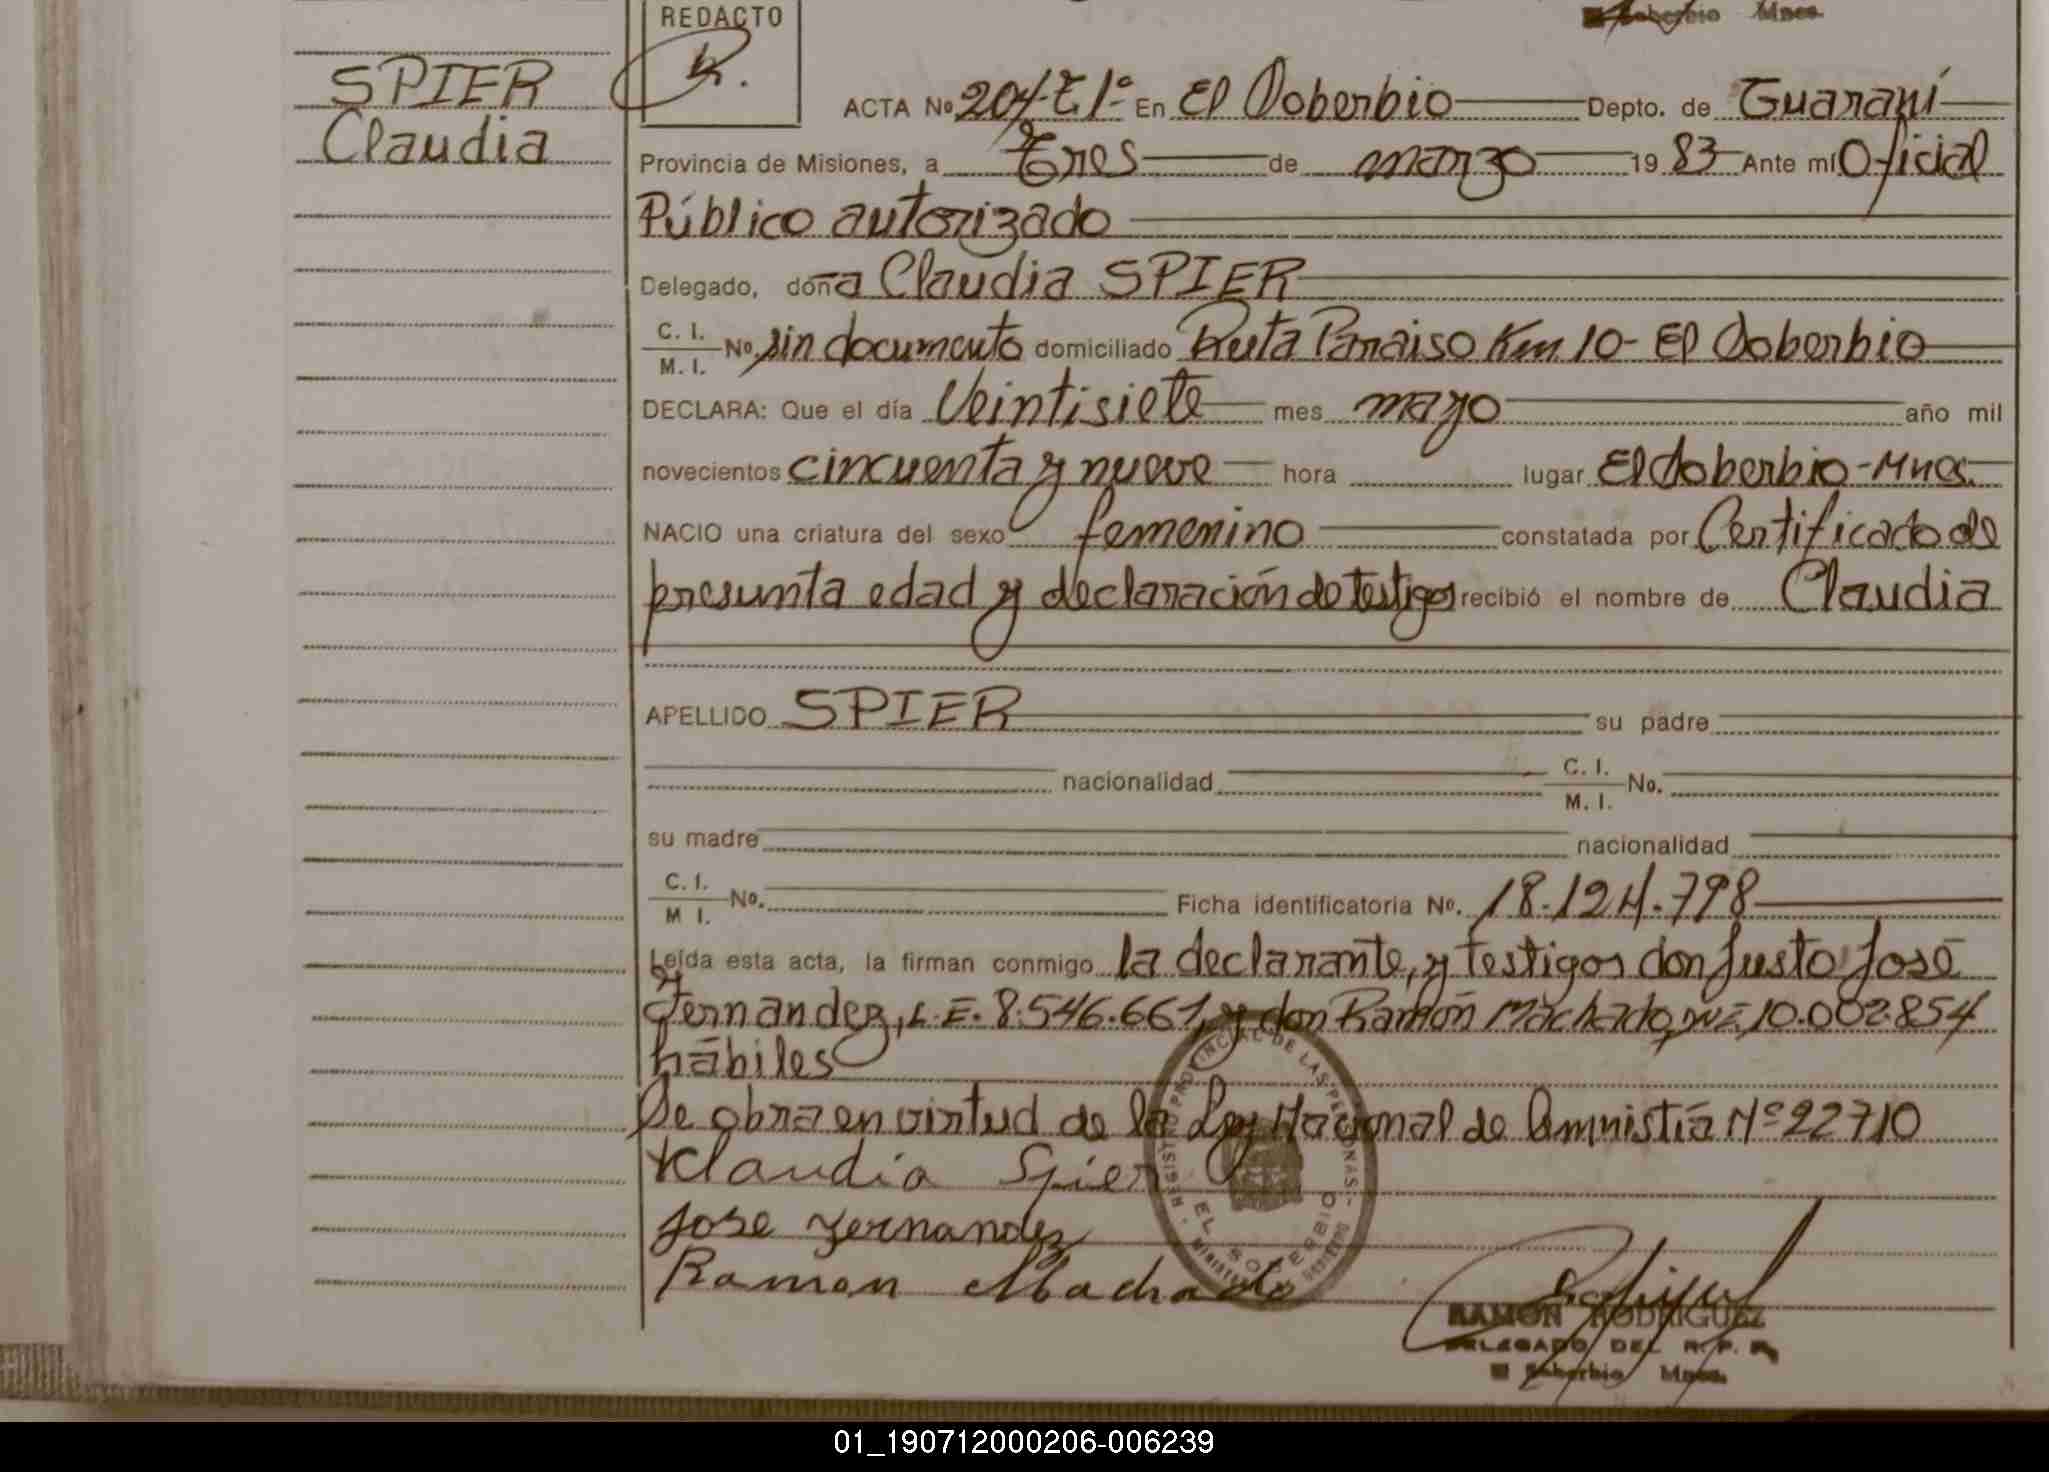 REDACTO
Soberbio Mnes.
SPIER
Claudia
ACTA Nº 204-T1º- En El Soberbio Depto. de Guaraní
Provincia de Misiones, a Tres de marzo 1983 Ante mí Oficial
Público autorizado
Delegado, doña Claudia SPIER
C. I.
M. I. Nº. sin documento domiciliado Ruta Paraiso Km 10- El Soberbio
DECLARA: Que el día Veintisiete mes mayo año mil
novecientos cincuenta y nueve hora lugar El Soberbio-Mnes.
NACIO una criatura del sexo femenino constatada por Certificado de
presunta edad y declaración de testigos recibió el nombre de Claudia
APELLIDO SPIER su padre
nacionalidad C. I.
M. I. No.
su madre nacionalidad
C. I.
M I. No. Ficha identificatoria Nº. 18.124.798
Leída esta acta, la firman conmigo la declarante, y testigos don Justo José
Fernandez, L.E. 8.546.661, y don Ramón Machado, 10.002.854
hábiles
Se obra en virtud de la Ley Nacional de Amnistía Nº 22710
Klaudia Spier
Jose Fernandez
Ramon Machado
REGISTRO PROVINCIAL DE LAS PERSONAS
EL SOBERBIO
RAMON RODRIGUEZ
DELEGADO DEL R. P. P.
El Soberbio Mnes.
01_190712000206-006239